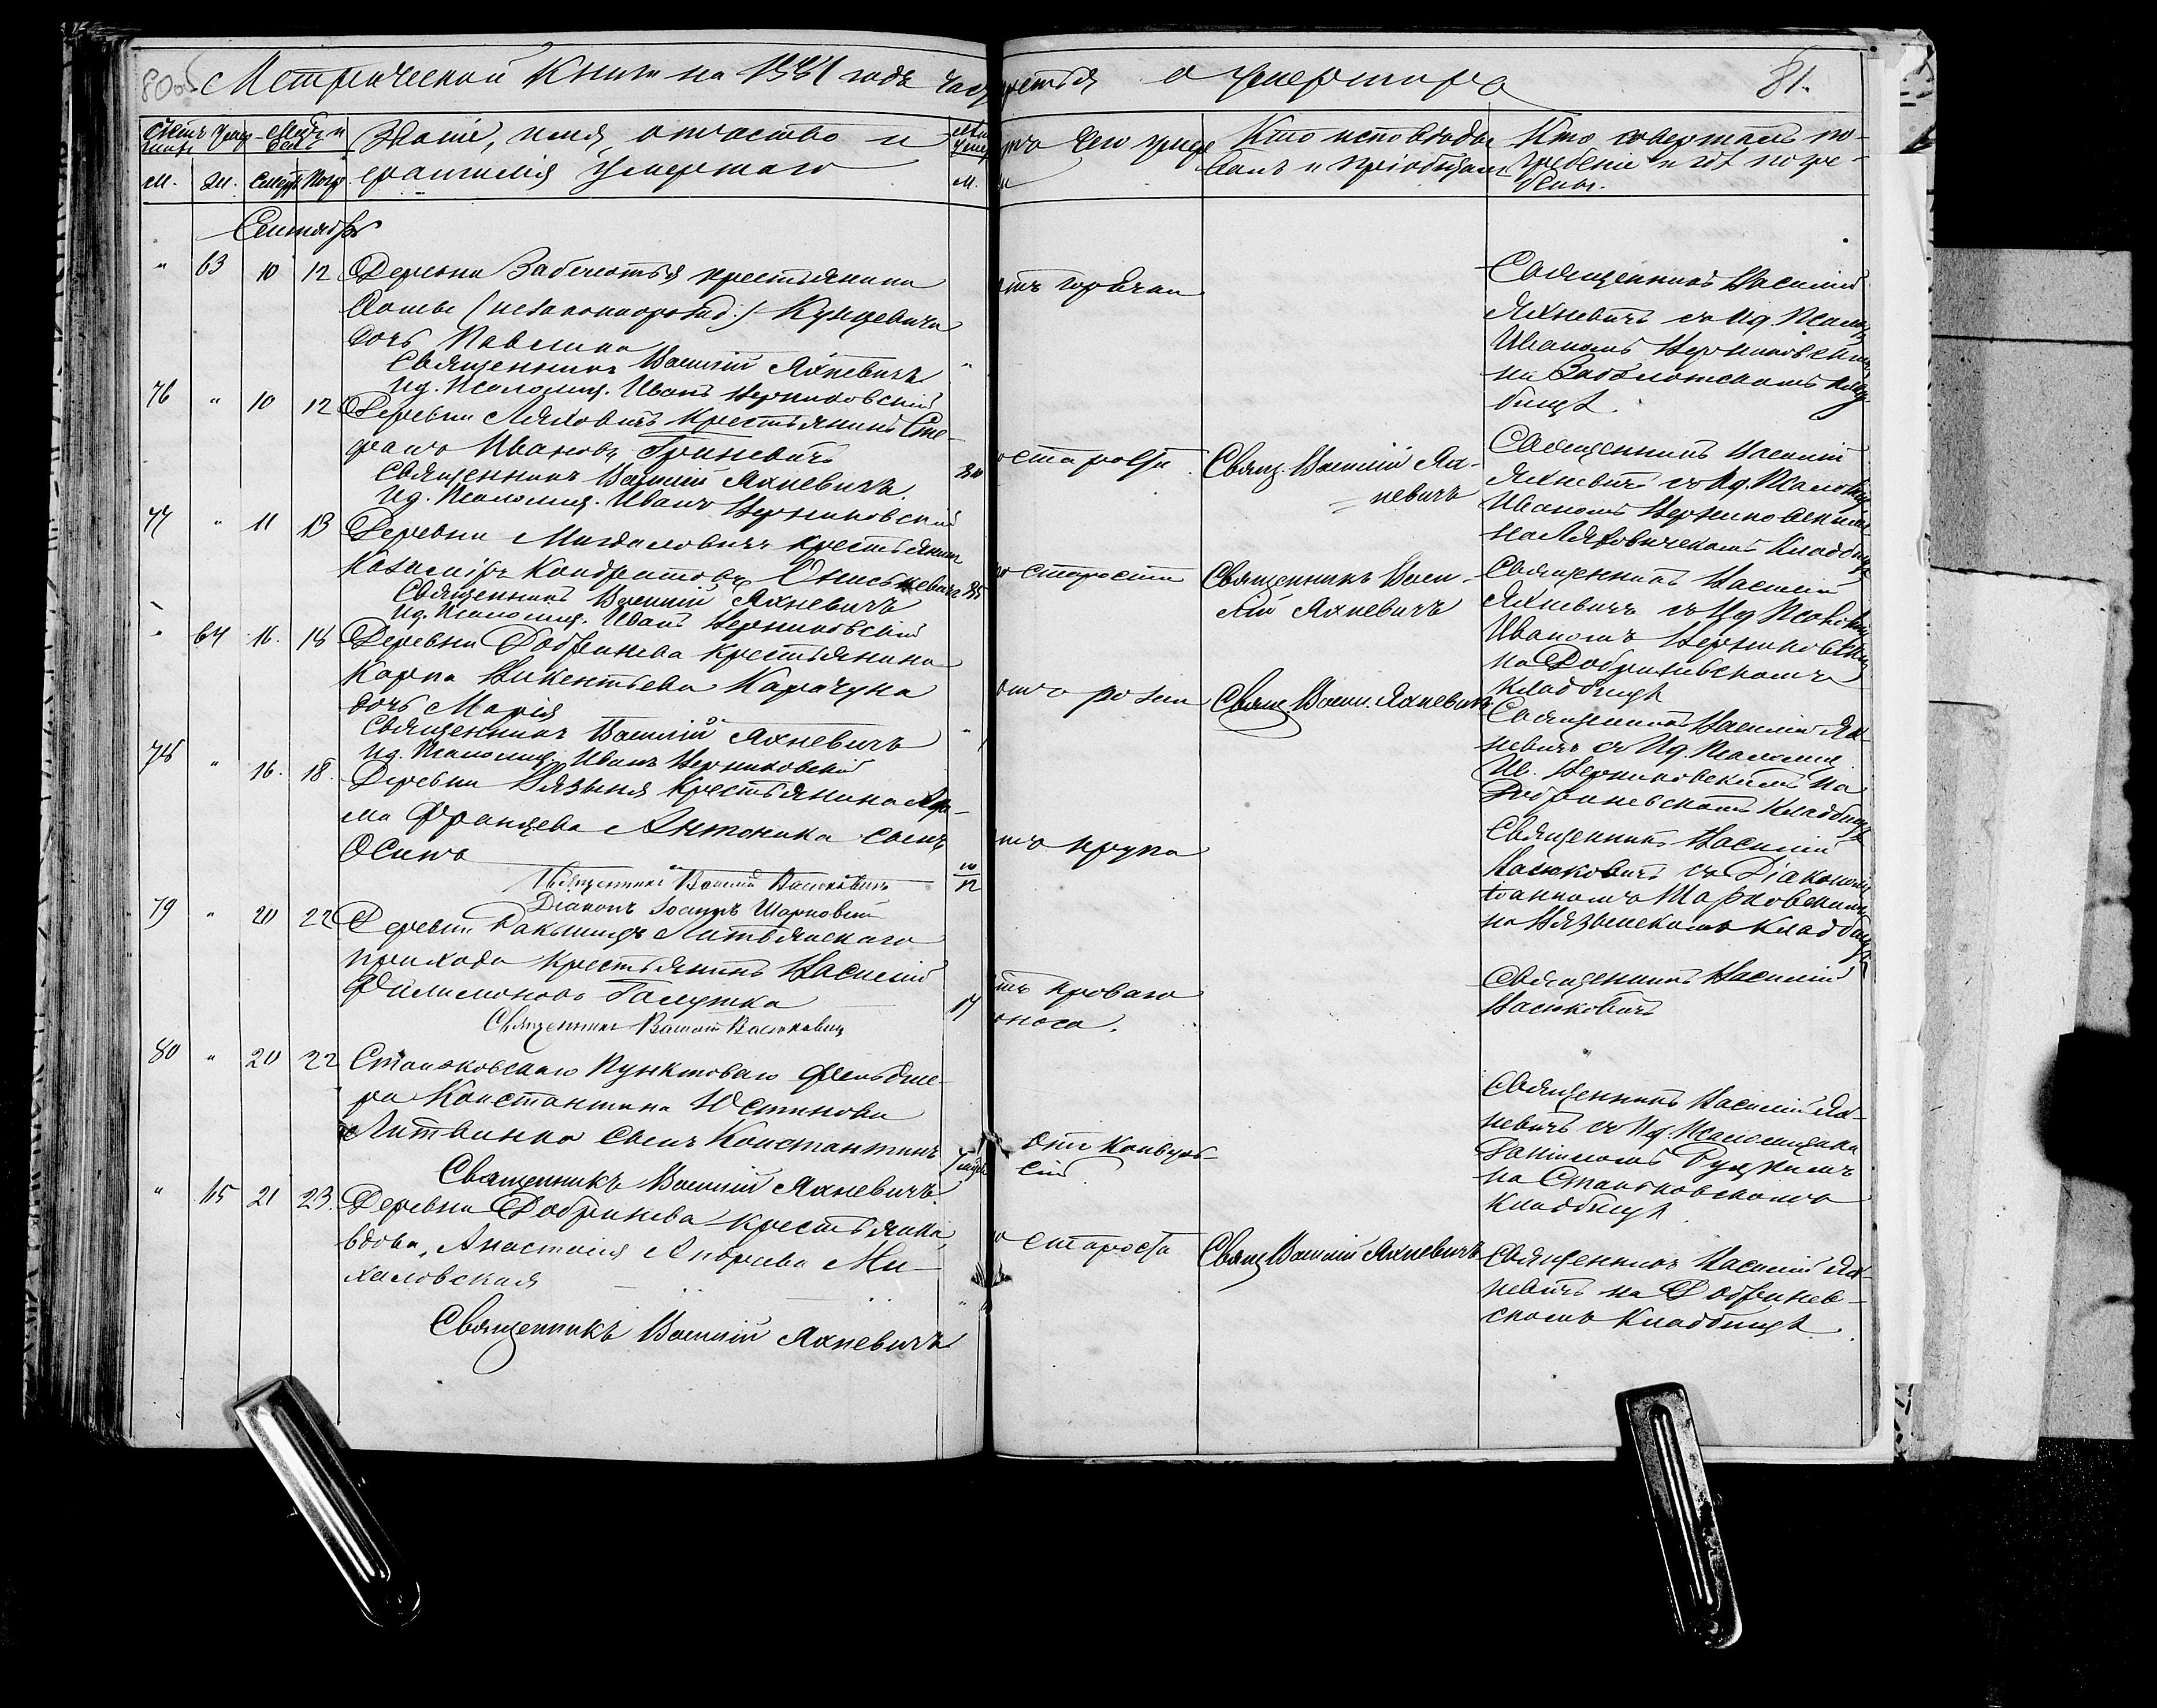 80об
Метрической Книги на 1881 годъ часть третья о умершихъ
81.
Счетъ умер
Мѣсяцъ и день
Званіе, имя, отчество и
фамилія умершаго
М. Ж. Смерти Погр.
Лѣта умер
М.
отъ чего умеръ
Кто исповѣды
валъ и пріобщалъ
Кто совершалъ по-
гребеніе и гдѣ погре-
бены.
Сентябрь
" 63 10 12 Деревни Заболотья крестьянина
(незаконнорожд.) Кунцевича
дочь Павлина
Священникъ Василій Яхневичъ
Ид. Псаломщ. Иванъ Верниковскій
отъ горячки
Священникъ Василій
Яхневичъ съ Ид. Псалом
Иваномъ Верниковским
на Заболотскомъ клад
бищѣ.
76 " 10 12 Деревни Ляховичъ крестьянинъ Сте-
фанъ Ивановъ Гриневичъ
Священникъ Василій Яхневичъ.
Ид. Псаломщ. Иванъ Верниковскій
80
старости
Свящ. Василій Ях-
невичъ
Священникъ Василій
Яхневичъ съ Ид. Псаломщ
Иваномъ Верниковским
на Ляховичскомъ Кладбищѣ
77 " 11 13 Деревни Магдаловичъ крестьянинъ
Казиміръ Кондратовъ Ониськевичъ 85
Священникъ Василій Яхневичъ
Ид. Псаломщ. Иванъ Верниковскій
старости
Священникъ Васи-
лій Яхневичъ
Священникъ Василій
Яхневичъ съ Ид Псаломщ
Иваномъ Верниковским
на Добриневскомъ
Кладбищѣ
" 64 16. 18 Деревни Добринева крестьянина
Карпа Викентьева Карачуна
дочь Марія
Священникъ Василій Яхневичъ
Ид. Псаломщ. Иванъ Верниковскій
отъ рожи
Свящ Васил. Яхневичъ
Священникъ Василій Ях-
невичъ съ Ид. Псаломщ.
Ив. Верниковскимъ на
Добриневскомъ Кладбищѣ
78 " 16. 18. Деревни Вязыня крестьянина
Францева Антоника сынъ
Осипъ
Священникъ Василій Васюковичъ
Діаконъ Іоаннъ Шарковскій
10/12
отъ крупа
Священникъ Василій
Васюковичъ съ Діакономъ
Іоанномъ Шарковскимъ
на Вязынскомъ Кладбищѣ
79 " 20 22 Деревни Ракшицъ
прихода крестьянинъ Василій
Филимоновъ Галушка
Священникъ Василій Васюковичъ
17
отъ кроваго
поноса.
Священникъ Василій
Васюковичъ
80 " 20 22 Станьковскаго пунктоваго фельдше-
ра Константина Устинова
Литвинко сынъ Константинъ
Священникъ Василій Яхневичъ
отъ конвуль-
сій
Священникъ Василій Ях-
невичъ съ Ид. Псаломщикъ
на Станьковскомъ
кладбищѣ.
" 65 21 23. Деревни Добринева крестьянка,
вдова, Анастасія Андреева Ми-
халовская
Священникъ Василій Яхневичъ
старости
Свящ Василій Яхневичъ
Священникъ Василій Ях-
невичъ на Добринев-
скомъ Кладбищѣ.